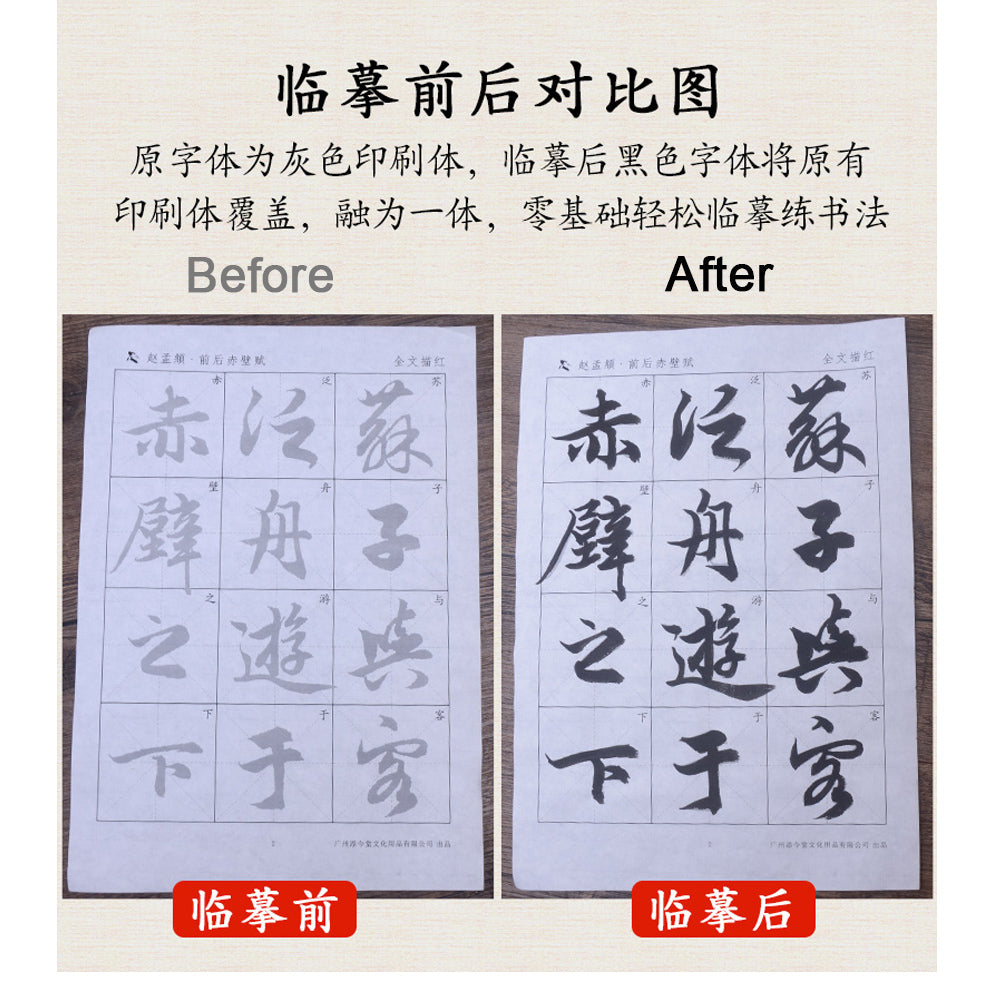 临摹前后对比图
原字体为灰色印刷体，临摹后黑色字体将原有
印刷体覆盖，融为一体，零基础轻松临摹练书法
Before
After
赵孟頫·前后赤壁赋 全文描红
赤 泛 苏
赤 泛 蘇
壁 舟 子
壁 舟 子
之 游 与
之 遊 與
下 于 客
下 于 客
2 广州添今堂文化用品有限公司 出品
临摹前
赵孟頫·前后赤壁赋 全文描红
赤 泛 苏
赤 泛 蘇
壁 舟 子
壁 舟 子
之 游 与
之 遊 與
下 于 客
下 于 客
2 广州添今堂文化用品有限公司 出品
临摹后